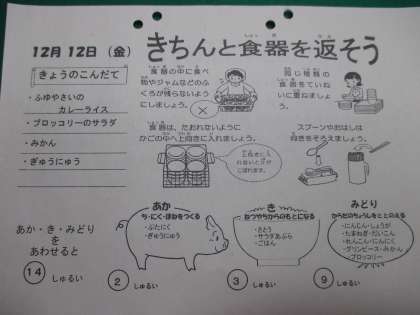 12月12日（金）
きちんと食器を返そう
きょうのこんだて
・ふゆやさいの
カレーライス
・ブロッコリーのサラダ
・みかん
・ぎゅうにゅう
食器の中に食べ
物やジャムなどのふ
くろが残らないように
しましょう。
同じ種類の
食器をていね
いに重ねましょ
う。
食器は、たおれないように
かごの中へ上向きに入れましょう。
スプーンやおはしは
向きをそろえましょう。
あか・き・みどり
を
あわせると
14 しゅるい
あか
ち・にく・ほねをつくる
・ぶたにく
・ぎゅうにゅう
2 しゅるい
き
ねつやちからのもとになる
・さとう
・サラダあぶら
・ごはん
3 しゅるい
みどり
からだのちょうしをととのえる
・にんじん・しょうが
・たまねぎ・だいこん
・れんこん・にんにく
・グリンピース・みかん
・ブロッコリー
9 しゅるい